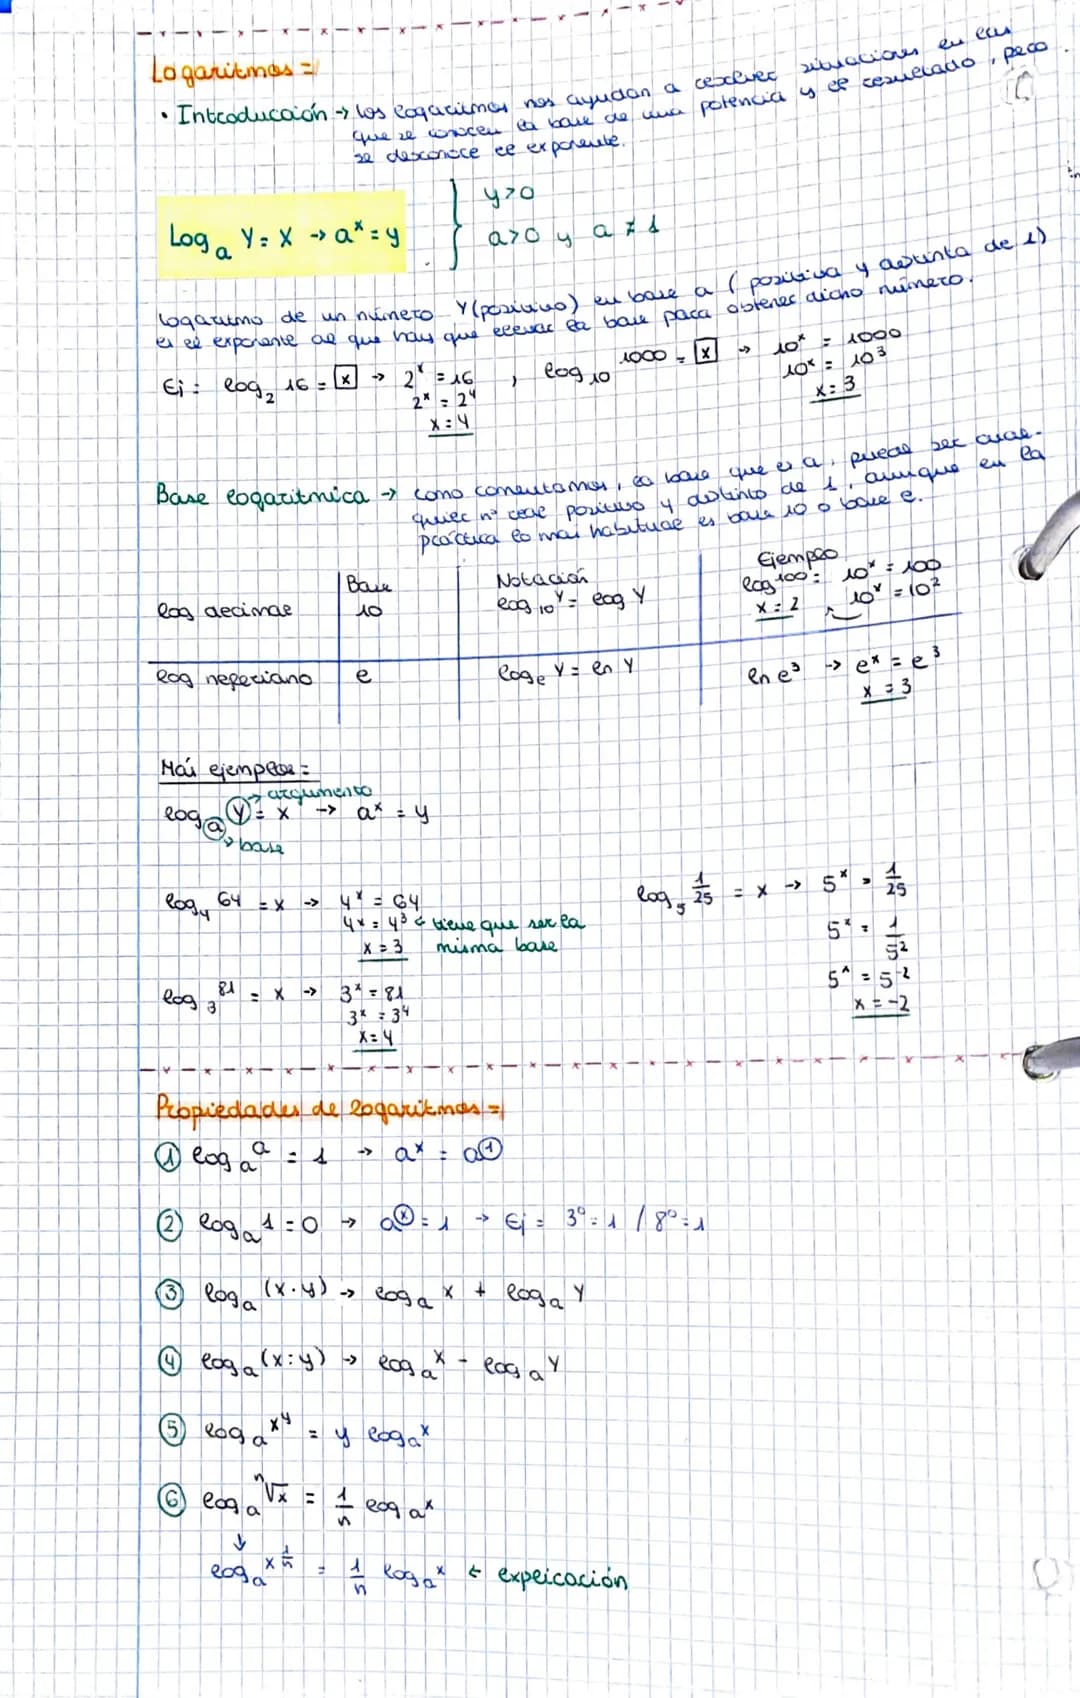 Logaritmos =
• Introducción → los logaritmos nos ayudan a resolver situaciones en las
que se conocen la base de una potencia y el resultado, pero
se desconoce el exponente.
Log_a Y = X → a^x = y } y>0
a>0 y a ≠ 1
logaritmo de un número Y (positivo) en base a (positiva y distinta de 1)
es el exponente al que hay que elevar la base para obtener dicho número.
Ej: log_2 16 = x → 2^x = 16 , log_10 1000 = x → 10^x = 1000
2^x = 2^4 10^x = 10^3
x = 4 x = 3
Base logarítmica → como comentamos, la base que es a, puede ser cual-
quier nº real positivo y distinto de 1, aunque en la
práctica lo más habitual es base 10 o base e.
Base Notación Ejemplo
log decimal 10 log_10 Y = log Y log 100 = 10^x = 100
x = 2 10^x = 10^2
log neperiano e log_e Y = ln Y ln e^3 → e^x = e^3
x = 3
Más ejemplos =
→ argumento
log_a Y = x → a^x = y
→ base
log_4 64 = x → 4^x = 64
4^x = 4^3 ← tiene que ser la
x = 3 misma base
log_3 81 = x → 3^x = 81
3^x = 3^4
x = 4
log_5 1/25 = x → 5^x = 1/25
5^x = 1/5^2
5^x = 5^-2
x = -2
Propiedades de logaritmos =
① log_a a = 1 → a^x = a^1
② log_a 1 = 0 → a^x = 1 → Ej = 3^0 = 1 / 8^0 = 1
③ log_a (x·y) → log_a x + log_a Y
④ log_a (x:y) → log_a x - log_a Y
⑤ log_a x^y = y log_a x
⑥ log_a ⁿ√x = 1/n log_a x
↓
log_a x^1/n = 1/n log_a x ← explicación